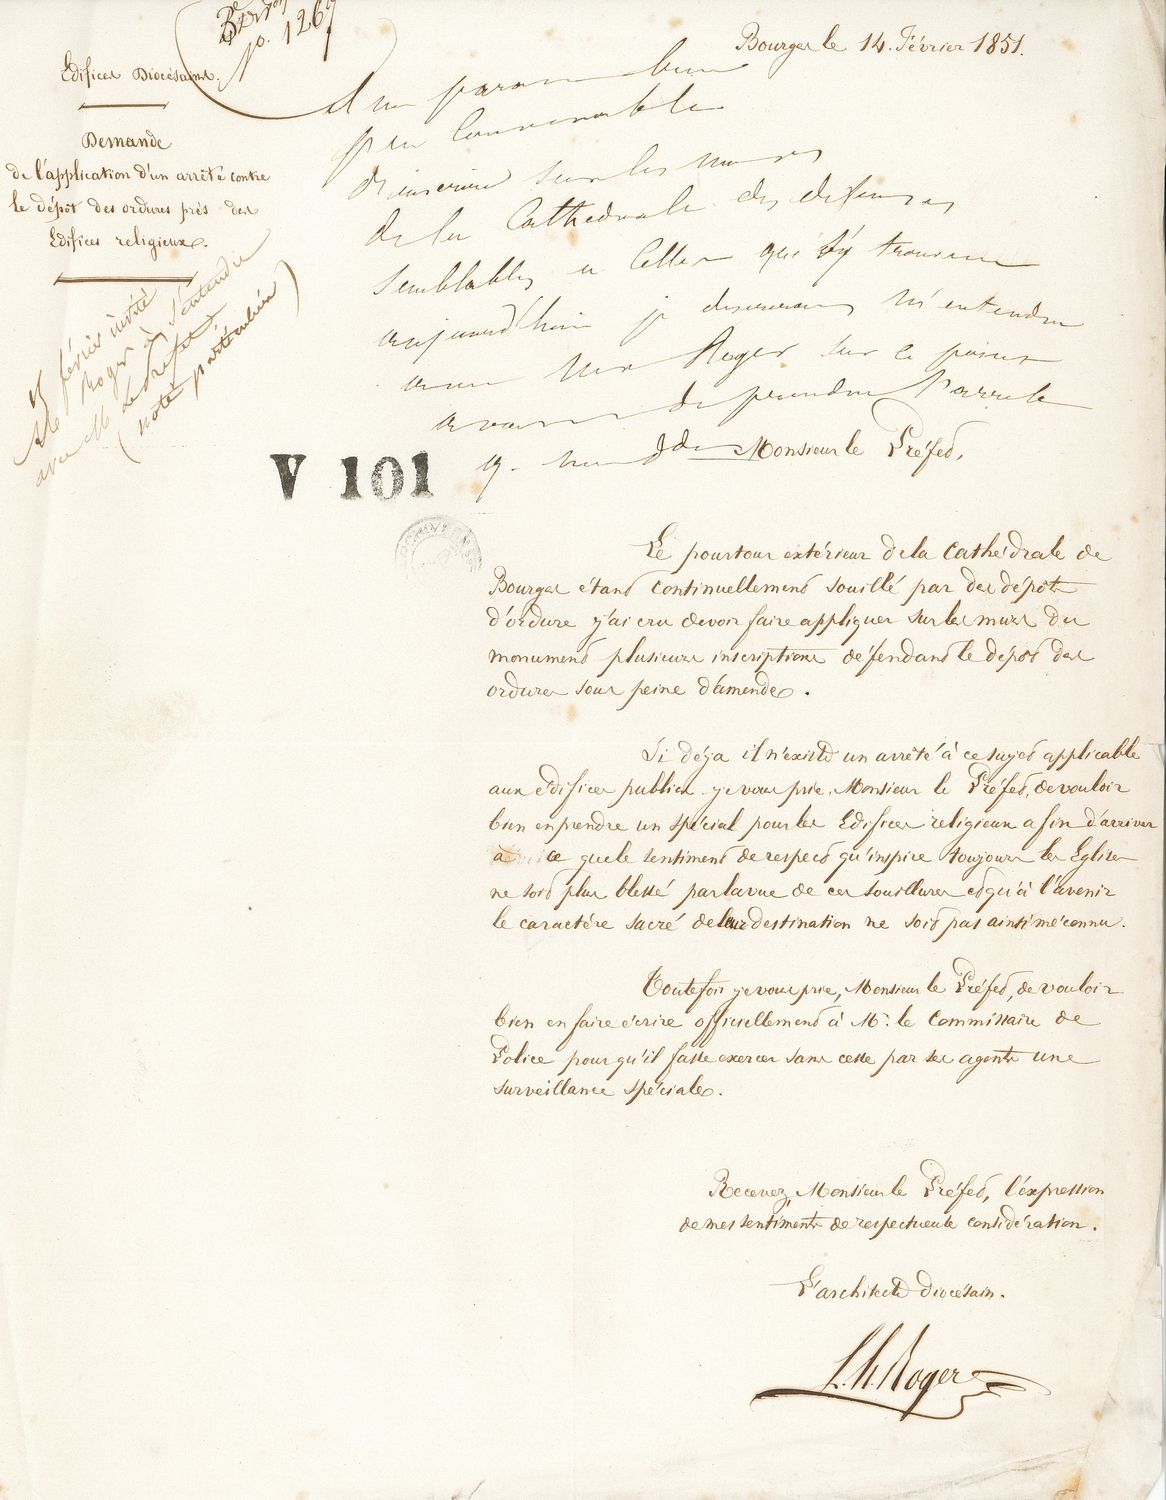 No. 1267
Bourges le 14. Février 1851.
Edifices Diocésains.
Demande
de l'application d'un arrêté contre
le dépôt des ordures près des
Edifices religieux.
15 février invité
Mr Roger à s'entendre
avec M. Le Préfet
(note particulière)
il me paraît bien
peu convenable
d'inscrire sur les murs
de la Cathédrale des défenses
semblables à celles qui s'y trouvent
aujourd'hui je désirerais m'entendre
avec Mr Roger sur ce point
avant de prendre l'arrêté
V 101
Monsieur le Préfet,
Le pourtour extérieur de la Cathédrale de
Bourges étant continuellement souillé par des dépôts
d'ordure j'ai cru devoir faire appliquer sur les murs du
monument plusieurs inscriptions défendant le dépôt des
ordures sous peine d'amende.
Si déja il n'existe un arrêté à ce sujet applicable
aux édifices publics je vous prie, Monsieur le Préfet, de vouloir
bien en prendre un spécial pour les Edifices religieux afin d'arriver
à ce que le sentiment de respect qu'inspire toujours les Eglises
ne soit plus blessé par la vue de ces souillures et qu'à l'avenir
le caractère sacré de leur destination ne soit pas ainsi méconnu.
Toutefois je vous prie, Monsieur le Préfet, de vouloir
bien en faire écrire officiellement à Mr. le Commissaire de
Police pour qu'il fasse exercer sans cesse par ses agents une
surveillance spéciale.
Recevez, Monsieur le Préfet, l'expression
de mes sentiments de respectueuse considération.
L'architecte diocésain.
L. h. Roger